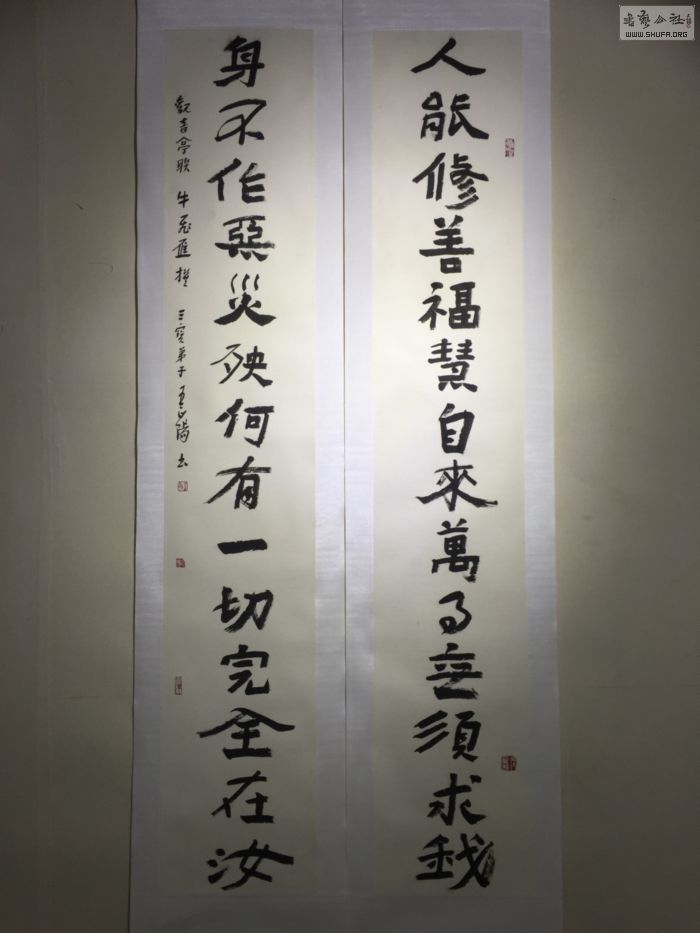 人能修善福慧自來萬事無須求我
身不作惡災殃何有一切完全在汝
觀音亭联 牛 撰 三寶弟子 書
書藝公社
WWW.SHUFA.ORG